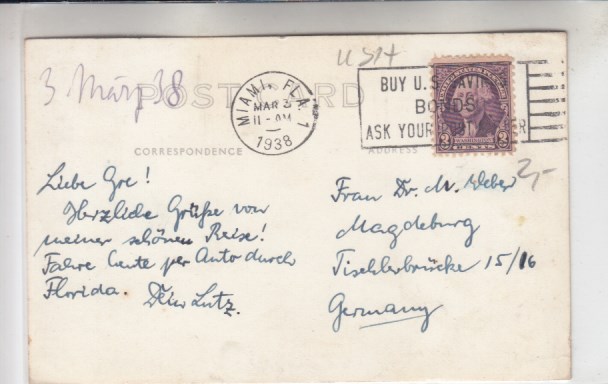 USA
3 März 38
POST CARD
MIAMI, FLA. 1
MAR 3
11-AM
1938
BUY U.S. SAVINGS
BONDS
ASK YOUR POSTMASTER
WASHINGTON
CORRESPONDENCE
ADDRESS
2,-
Liebe Gre!
Herzliche Grüße von
meiner schönen Reise!
Fahre heute per Auto durch
Florida. Dein Lutz.
Frau Dr. M. Weber
Magdeburg
Tischlerbrücke 15/16
Germany